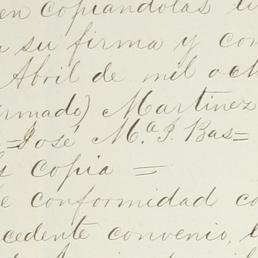 en copiandolas
su firma y con
Abril de mil och
rmado) Martinez
=José M.ª J. Bas=
s copia =
e conformidad co
cedente convenio,